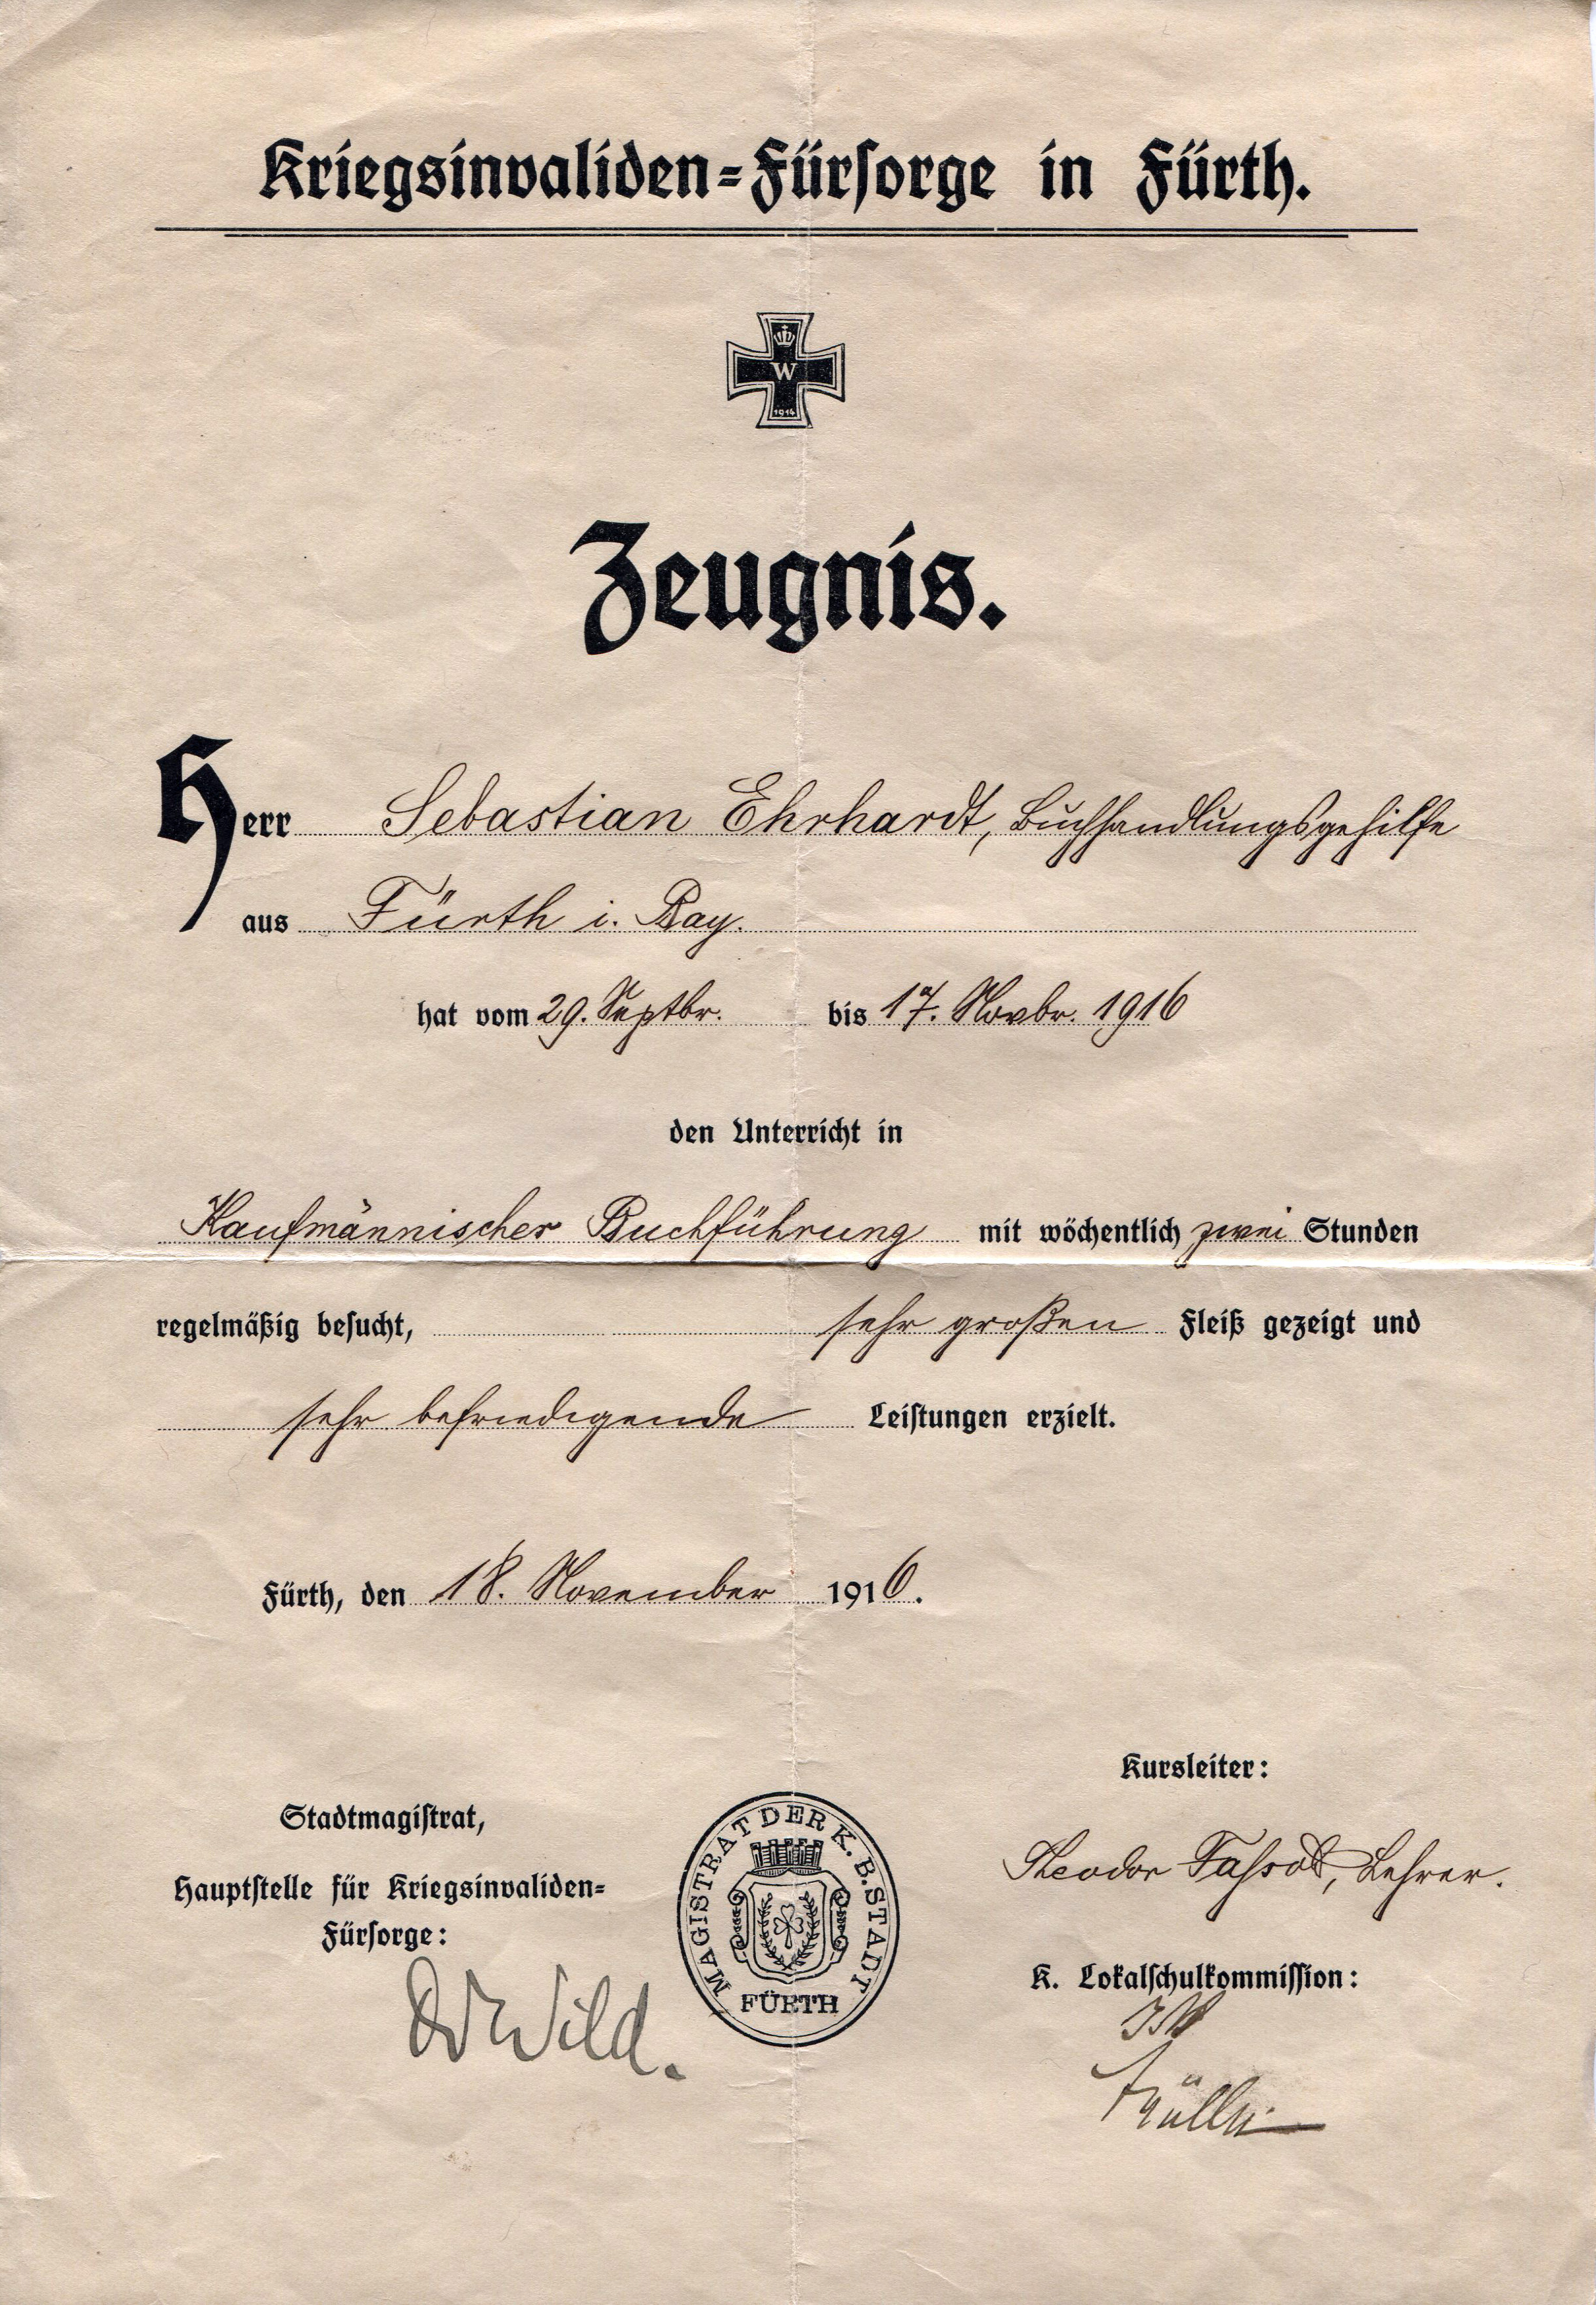 Kriegsinvaliden=Fürsorge in Fürth.
W
1914
Zeugnis.
Herr Sebastian Ehrhardt, Buchhandlungsgehilfe
aus Fürth i. Bay.
hat vom 29. Septbr. bis 17. Novbr. 1916
den Unterricht in
Kaufmännischer Buchführung mit wöchentlich zwei Stunden
regelmäßig besucht, sehr großen Fleiß gezeigt und
sehr befriedigende Leistungen erzielt.
Fürth, den 18. November 1916.
Kursleiter:
Theodor Lehrer.
Stadtmagistrat,
Hauptstelle für Kriegsinvaliden=
Fürsorge:
Dr Wild.
MAGISTRAT DER K. B. STADT
FÜRTH
K. Lokalschulkommission: